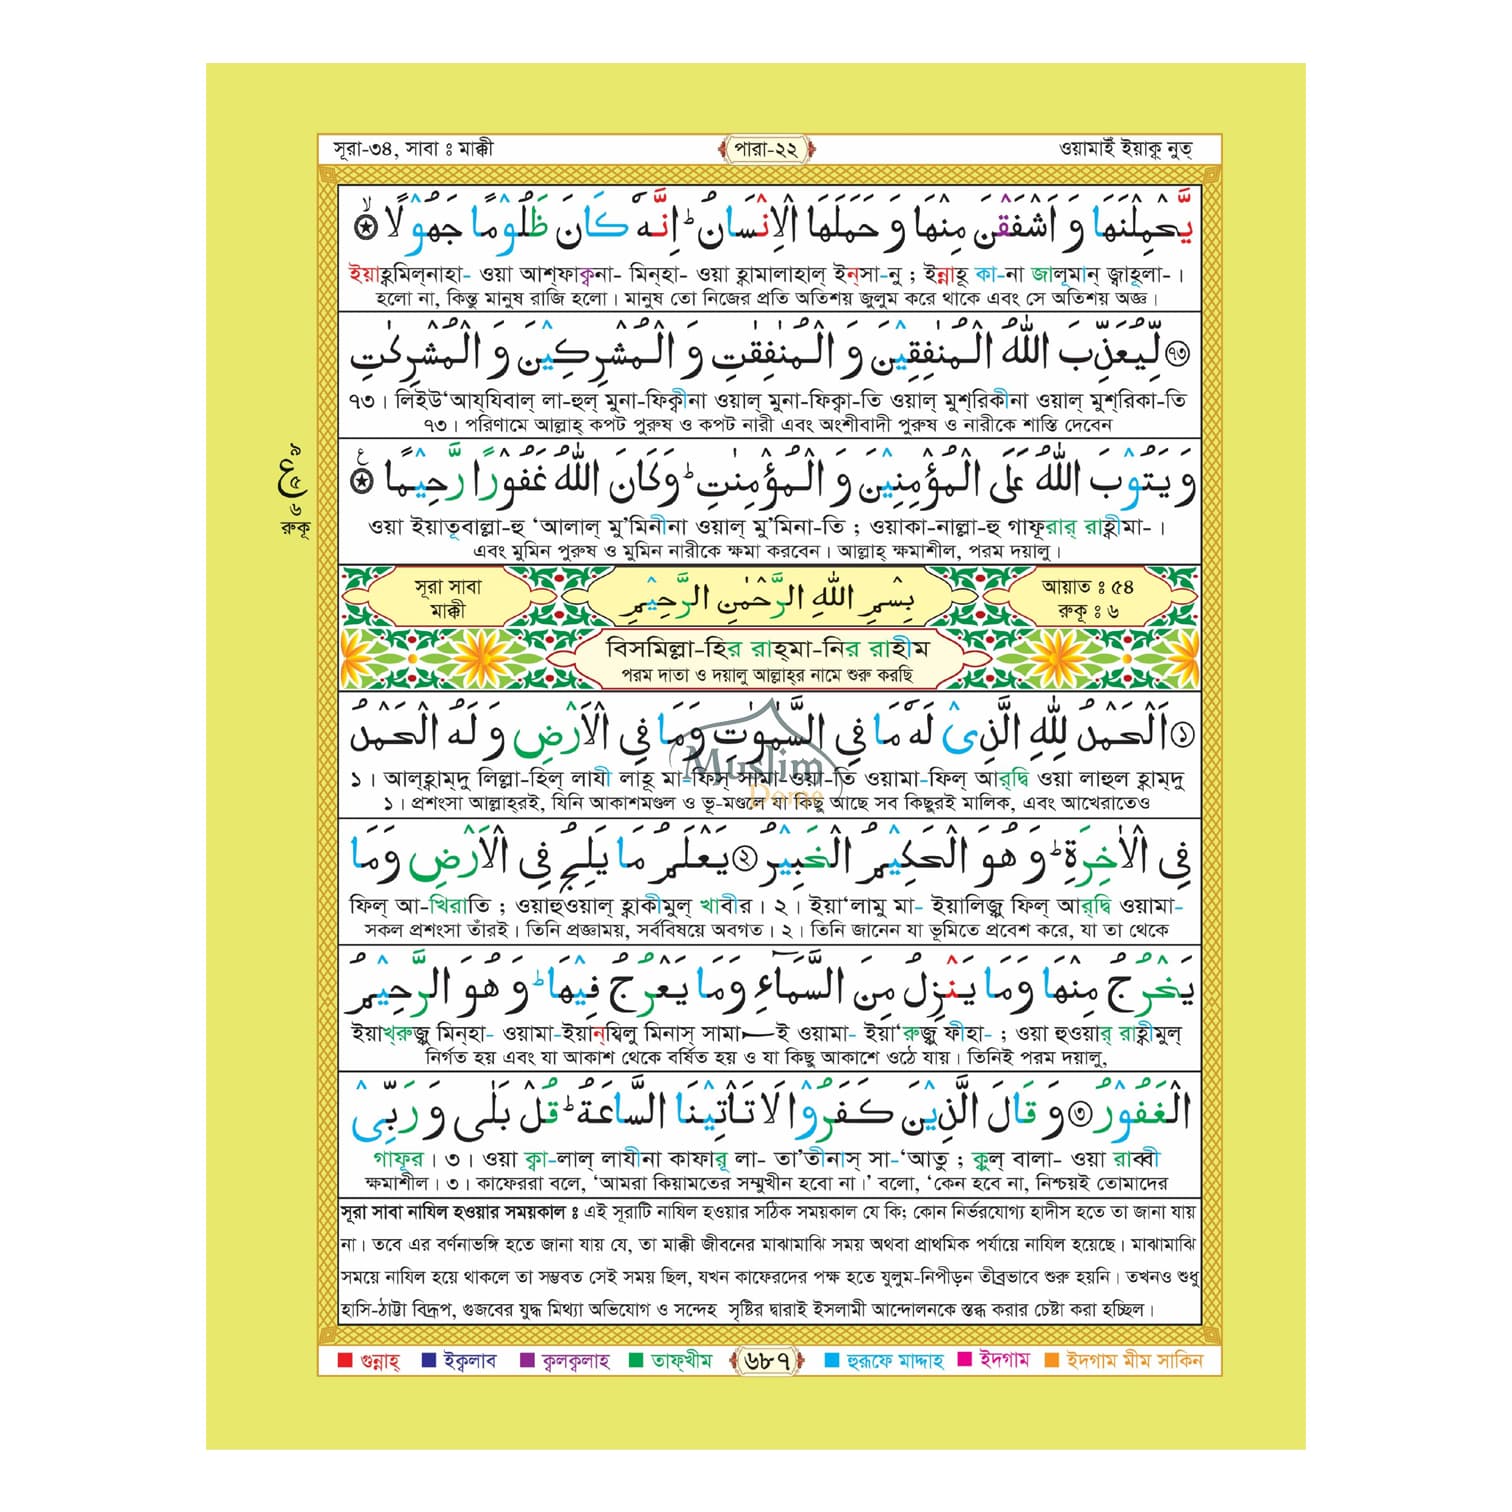 সূরা-৩৪, সাবা ঃ মাক্কী
পারা-২২
ওয়ামাইঁ ইয়াক্বু নুত্
يَّحْمِلْنَهَا وَ اَشْفَقْنَ مِنْهَا وَ حَمَلَهَا الْاِنْسَانُ ؕ اِنَّهٗ كَانَ ظَلُوْمًا جَهُوْلًا ۙ
ইয়াহ্বমিল্‌নাহা- ওয়া আশ্‌ফাক্বনা- মিন্‌হা- ওয়া হ্বামালাহাল্ ইন্‌সা-নু ; ইন্নাহূ কা-না জালূমান্ জ্বাহূলা-।
হলো না, কিন্তু মানুষ রাজি হলো। মানুষ তো নিজের প্রতি অতিশয় জুলুম করে থাকে এবং সে অতিশয় অজ্ঞ।
৭৩ لِّيُعَذِّبَ اللّٰهُ الْمُنٰفِقِيْنَ وَ الْمُنٰفِقٰتِ وَ الْمُشْرِكِيْنَ وَ الْمُشْرِكٰتِ
৭৩। লিইউ‘আয্‌যিবাল্ লা-হুল্ মুনা-ফিক্বীনা ওয়াল্ মুনা-ফিক্বা-তি ওয়াল্ মুশ্‌রিকীনা ওয়াল্ মুশ্‌রিকা-তি
৭৩। পরিণামে আল্লাহ্ কপট পুরুষ ও কপট নারী এবং অংশীবাদী পুরুষ ও নারীকে শাস্তি দেবেন
وَ يَتُوْبَ اللّٰهُ عَلَى الْمُؤْمِنِيْنَ وَ الْمُؤْمِنٰتِ ؕ وَكَانَ اللّٰهُ غَفُوْرًا رَّحِيْمًا ع
৯
ع ৫
রুকূ ৬
ওয়া ইয়াতূবাল্লা-হু ‘আলাল্ মু’মিনীনা ওয়াল্ মু’মিনা-তি ; ওয়াকা-নাল্লা-হু গাফূরার্ রাহ্বীমা-।
এবং মুমিন পুরুষ ও মুমিন নারীকে ক্ষমা করবেন। আল্লাহ্ ক্ষমাশীল, পরম দয়ালু।
সূরা সাবা
মাক্কী
بِسْمِ اللّٰهِ الرَّحْمٰنِ الرَّحِيْمِ
আয়াত ঃ ৫৪
রুকূ ঃ ৬
বিসমিল্লা-হির রাহ্‌মা-নির রাহীম
পরম দাতা ও দয়ালু আল্লাহ্‌র নামে শুরু করছি
১ اَلْحَمْدُ لِلّٰهِ الَّذِيْ لَهٗ مَا فِي السَّمٰوٰتِ وَمَا فِي الْاَرْضِ وَ لَهُ الْحَمْدُ
Muslim
Dome
১। আল্‌হ্বাম্‌দু লিল্লা-হিল্ লাযী লাহূ মা-ফিস্ সামা-ওয়া-তি ওয়ামা-ফিল্ আর্‌দ্বি ওয়া লাহুল হ্বাম্‌দু
১। প্রশংসা আল্লাহ্‌রই, যিনি আকাশমণ্ডল ও ভূ-মণ্ডলে যা কিছু আছে সব কিছুরই মালিক, এবং আখেরাতেও
فِي الْاٰخِرَةِ ؕ وَ هُوَ الْحَكِيْمُ الْخَبِيْرُ ২ يَعْلَمُ مَا يَلِجُ فِي الْاَرْضِ وَمَا
ফিল্ আ-খিরাতি ; ওয়াহুওয়াল্ হ্বাকীমুল্ খাবীর। ২। ইয়া‘লামু মা- ইয়ালিজু ফিল্ আর্‌দ্বি ওয়ামা-
সকল প্রশংসা তাঁরই। তিনি প্রজ্ঞাময়, সর্ববিষয়ে অবগত। ২। তিনি জানেন যা ভূমিতে প্রবেশ করে, যা তা থেকে
يَخْرُجُ مِنْهَا وَمَا يَنْزِلُ مِنَ السَّمَآءِ وَمَا يَعْرُجُ فِيْهَا ؕ وَ هُوَ الرَّحِيْمُ
ইয়াখ্‌রুজু মিন্‌হা- ওয়ামা-ইয়ান্‌যিলু মিনাস্ সামা—ই ওয়ামা- ইয়া‘রুজু ফীহা- ; ওয়া হুওয়ার্ রাহ্বীমুল্
নির্গত হয় এবং যা আকাশ থেকে বর্ষিত হয় ও যা কিছু আকাশে ওঠে যায়। তিনিই পরম দয়ালু,
الْغَفُوْرُ ৩ وَ قَالَ الَّذِيْنَ كَفَرُوْا لَا تَاْتِيْنَا السَّاعَةُ ؕ قُلْ بَلٰى وَ رَبِّيْ
গাফূর। ৩। ওয়া ক্বা-লাল্ লাযীনা কাফারূ লা- তা’তীনাস্ সা-‘আতু ; ক্বুল্ বালা- ওয়া রাব্বী
ক্ষমাশীল। ৩। কাফেররা বলে, ‘আমরা কিয়ামতের সম্মুখীন হবো না।’ বলো, ‘কেন হবে না, নিশ্চয়ই তোমাদের
সূরা সাবা নাযিল হওয়ার সময়কাল ঃ এই সূরাটি নাযিল হওয়ার সঠিক সময়কাল যে কি; কোন নির্ভরযোগ্য হাদীস হতে তা জানা যায়
না। তবে এর বর্ণনাভঙ্গি হতে জানা যায় যে, তা মাক্কী জীবনের মাঝামাঝি সময় অথবা প্রাথমিক পর্যায়ে নাযিল হয়েছে। মাঝামাঝি
সময়ে নাযিল হয়ে থাকলে তা সম্ভবত সেই সময় ছিল, যখন কাফেরদের পক্ষ হতে যুলুম-নিপীড়ন তীব্রভাবে শুরু হয়নি। তখনও শুধু
হাসি-ঠাট্টা বিদ্রূপ, গুজবের যুদ্ধ মিথ্যা অভিযোগ ও সন্দেহ সৃষ্টির দ্বারাই ইসলামী আন্দোলনকে স্তব্ধ করার চেষ্টা করা হচ্ছিল।
গুন্নাহ্ ইক্বলাব ক্বলক্বলাহ তাফ্‌খীম ৬৮৭ হুরূফে মাদ্দাহ ইদগাম ইদগাম মীম সাকিন